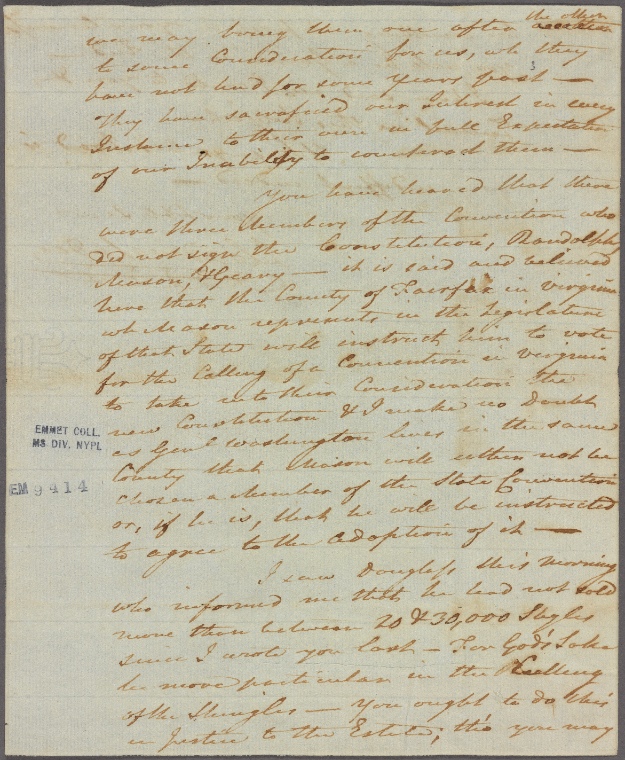 we may bring them one after the other
to some Consideration for us, wh they
have not had for some years past —
They have sacrificed our Interest in every
Instance to their own in full Expectation
of our Inability to counteract them —
You have heared that there
were three Members of the Convention who
did not sign the Constitution, Randolph,
Mason, & Geary — it is said and believed
here that the County of Fairfax in Virginia
wh Mason represents in the Legislature
of that State will instruct him to vote
for the Calling of a Convention in Virginia
to take into their Consideration the
new Constitution & I make no Doubt
as Genl Washington lives in the same
County that Mason will either not be
chosen a Member of the State Convention
or, if he is, that he will be instructed
to agree to the adoption of it —
I saw Douglass this morning
who informed me that he had not sold
more than between 20 & 30,000 Shgles
since I wrote you last — For God's Sake
be more particular in the Culling
of the Shingles — you ought to do this
in Justice to the Estate; tho' you may
3
EMMET COLL.
MS DIV. NYPL
EM 9414